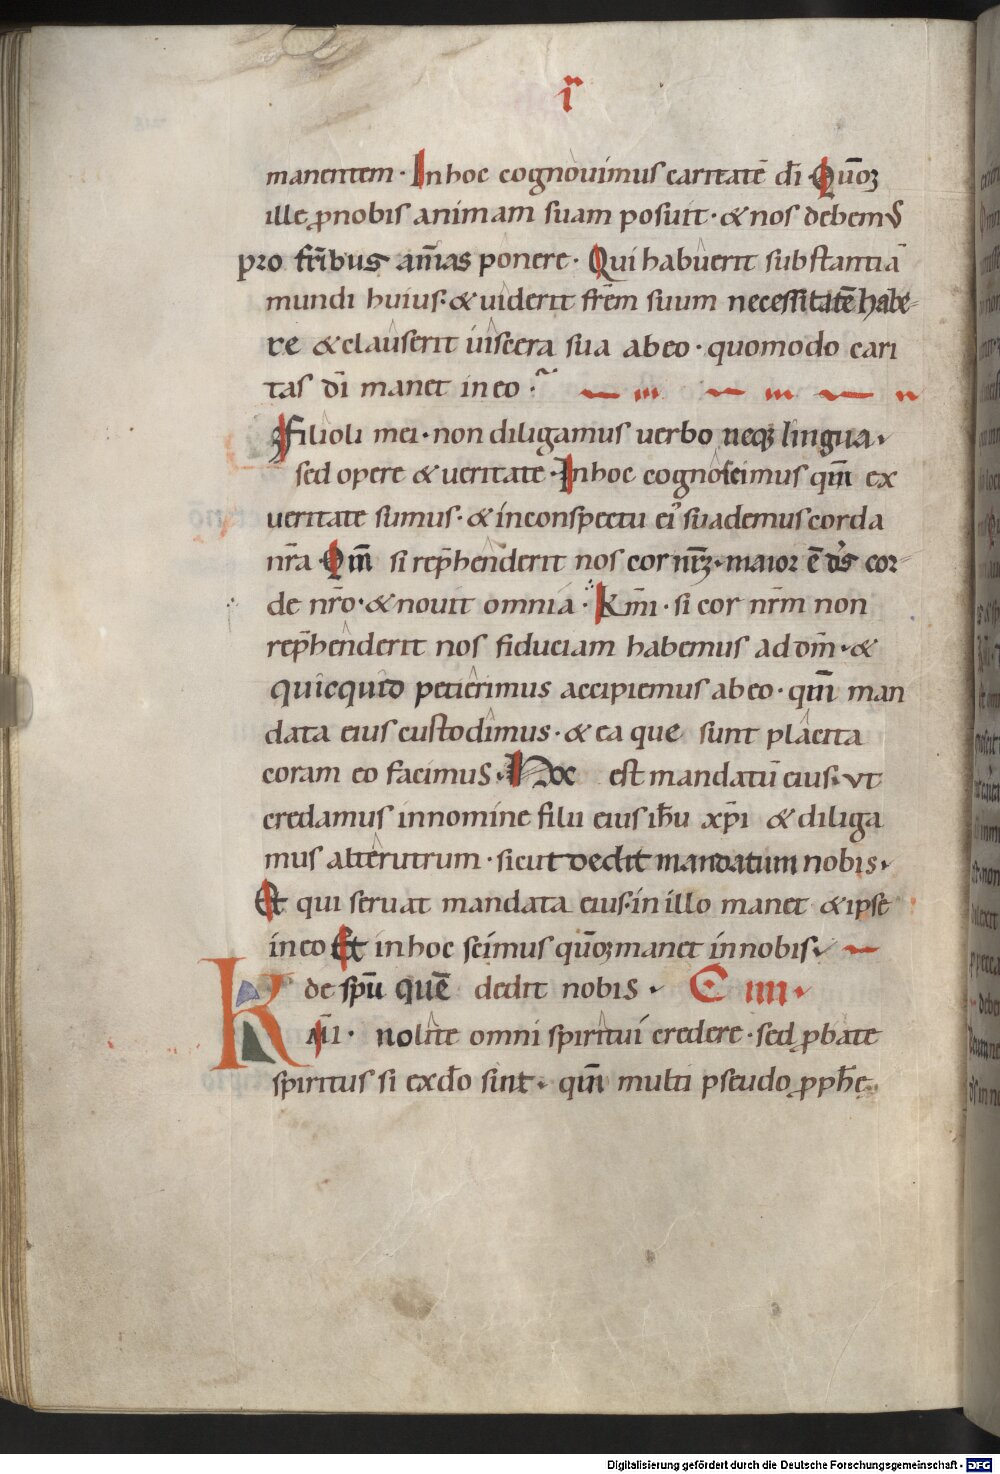 i
manentem · In hoc cognouimus caritatē d̄i · Quōꝫ
ille ꝓ nobis animam suam posuit · & nos debem᷒
pro fr̄ibus am̄as ponere · Qui habuerit substantiā
mundi huius · & uiderit fr̄em suum necessitatē habe-
re & clauserit uiscera sua ab eo · quomodo cari
tas d̄i manet in eo ·
Filioli mei · non diligamus uerbo neq; lingua ·
sed opere & ueritate · In hoc cognoscimus qm̄ ex
ueritate sumus · & in conspectu ei᷒ suademus corda
nr̄a · Qm̄ si rep̄henderit nos cor nr̄ꝫ · maior ē d̄s cor-
de nr̄o · & nouit omnia · Km̄i · si cor nr̄m non
rep̄henderit nos fiduciam habemus ad dm̄ · &
quicquid petierimus accipiemus ab eo · qm̄ man
data eius custodimus · & ea que sunt placita
coram eo facimus · Hoc est mandatū eius · vt
credamus in nomine filii eius ih̄u xp̄i & diliga
mus alterutrum · sicut dedit mandatum nobis ·
Et qui seruat mandata eius · in illo manet & ipse
in eo Et in hoc scimus quōꝫ manet in nobis ·
de sp̄u quē dedit nobis · C IIII ·
Km̄i · nolite omni spiritui credere · sed ꝓbate
spiritus si ex d̄o sint · qm̄ multi pseudo ꝓph̄e
Digitalisierung gefördert durch die Deutsche Forschungsgemeinschaft - DFG